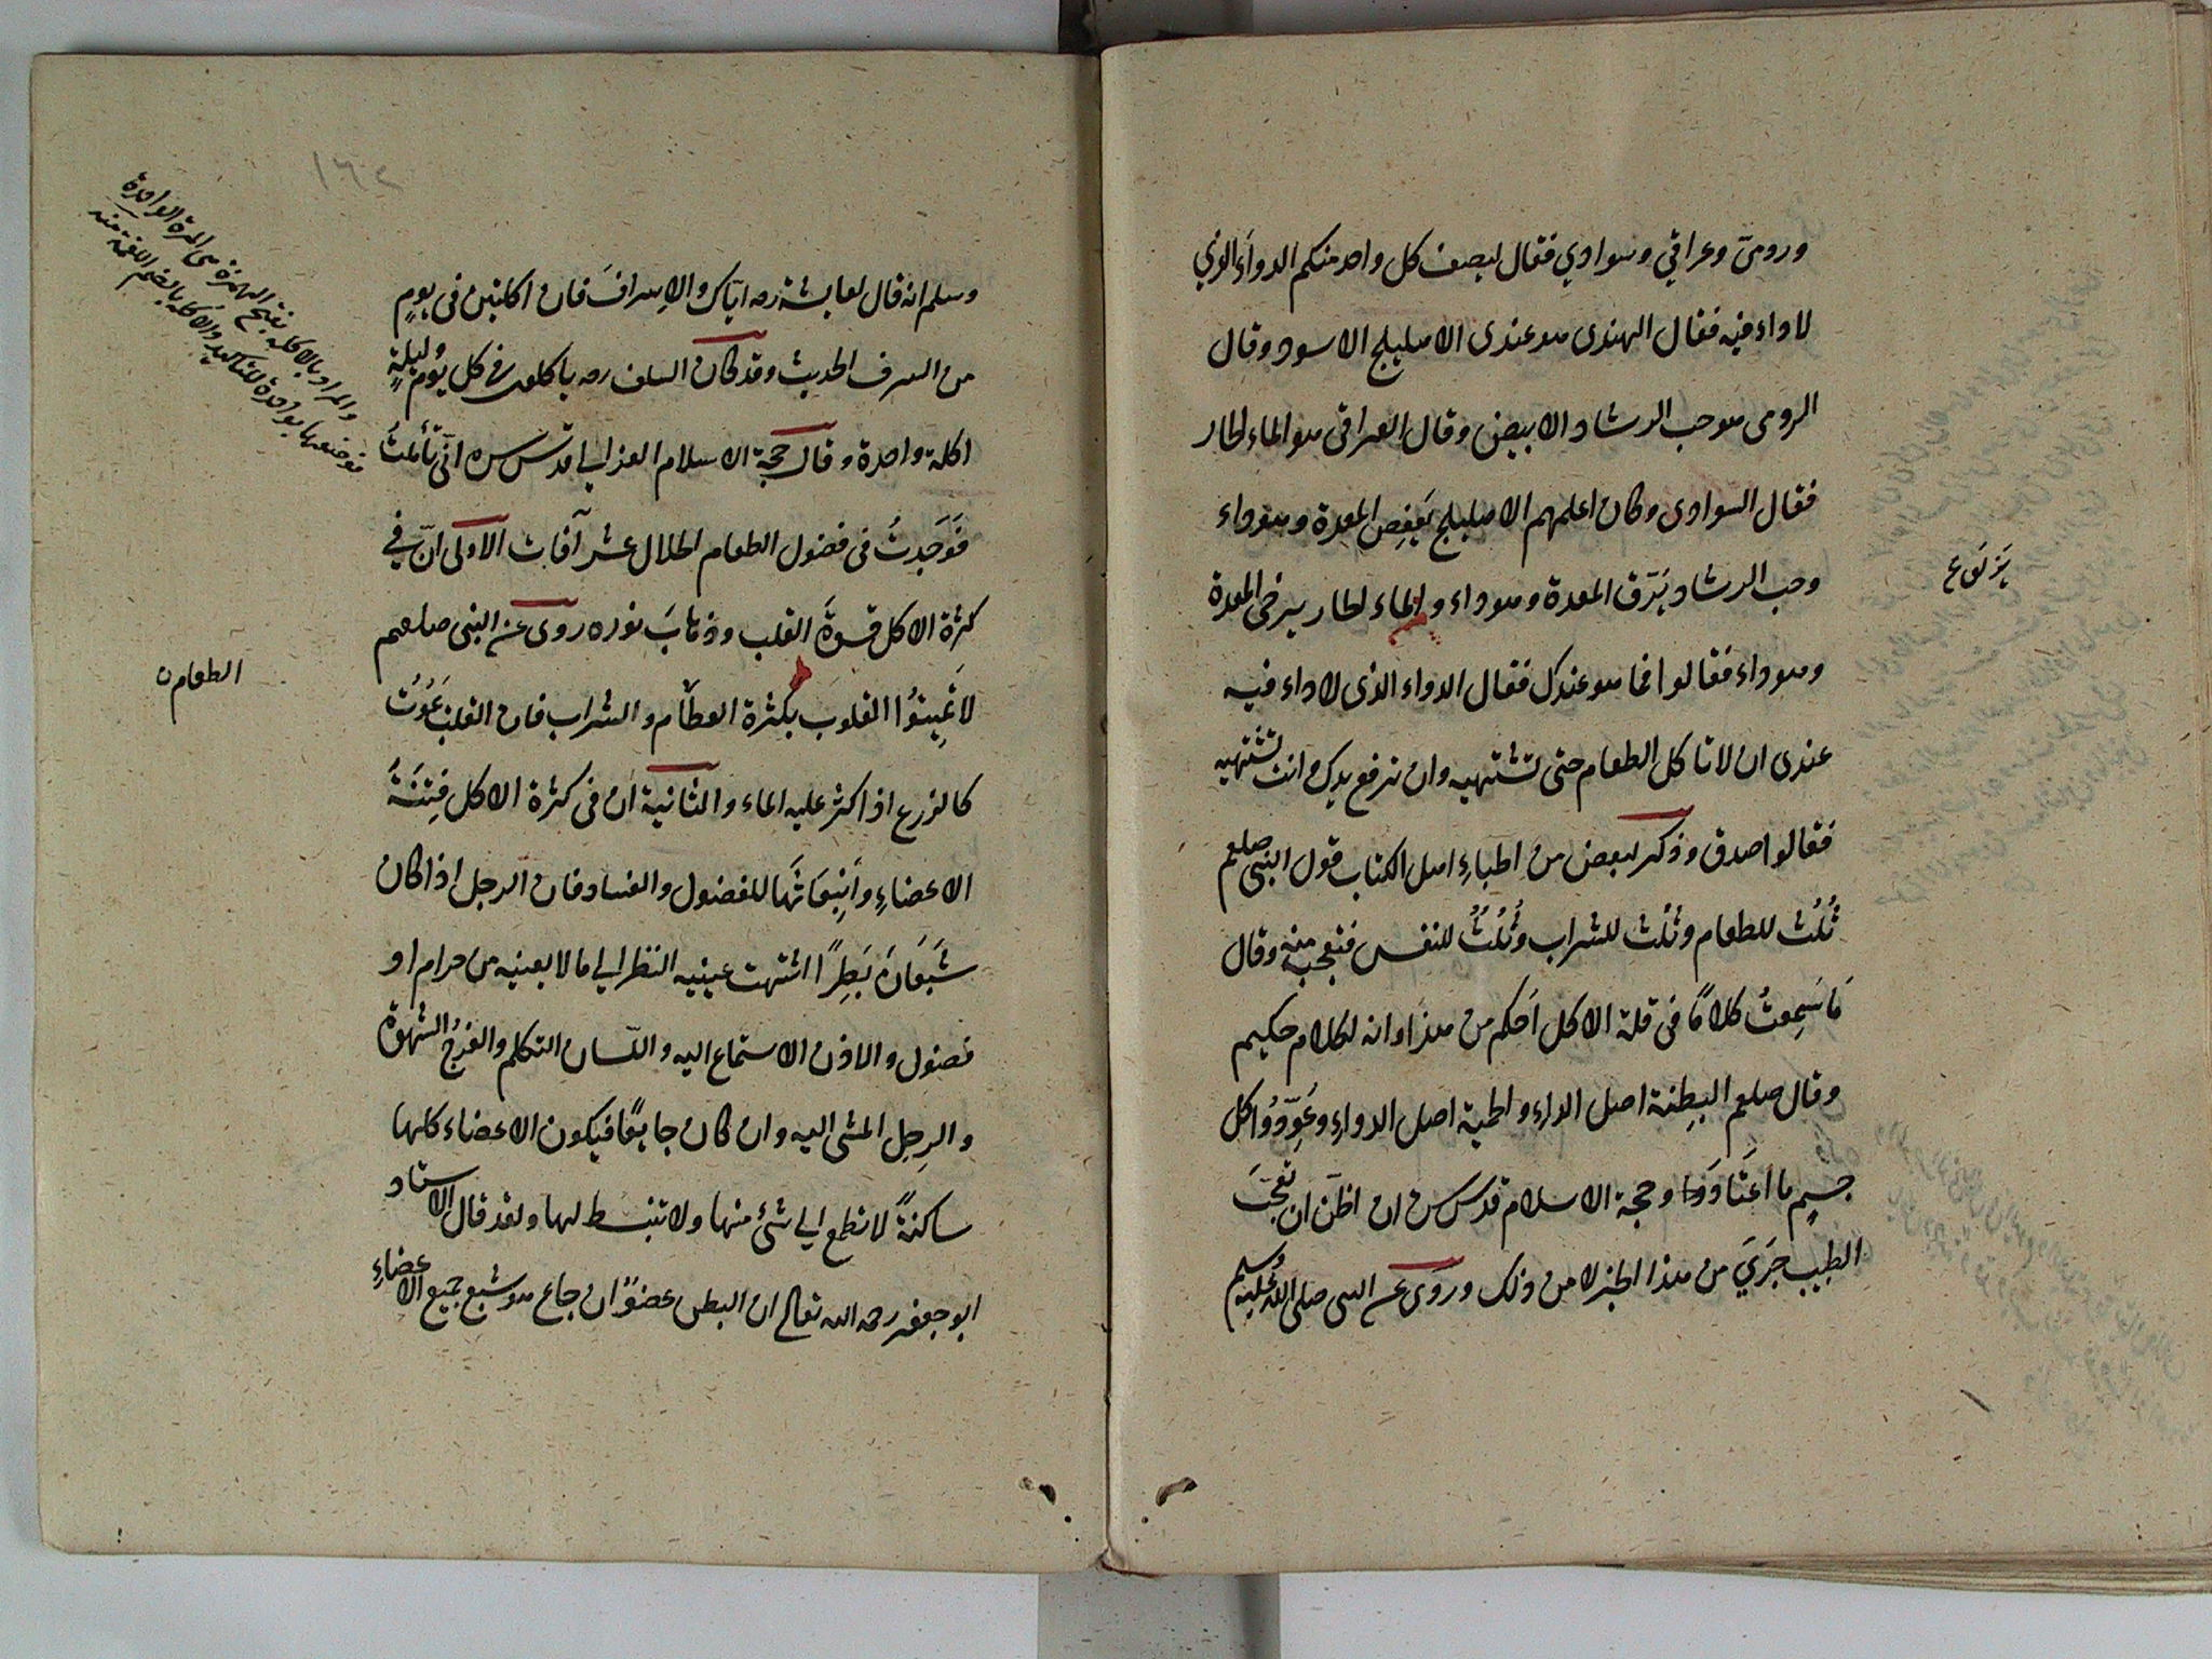 ورومىّ وعراقي وسوادي فقال ليصف كل واحد منكم الدواء الذي
لا داء فيه فقال الهندى هو عندى الاهليلج الاسود وقال
الرومى هو حب الرشاد الابيض وقال العراقى هو الماء الحار
فقال السوادى وكان اعلمهم الاهليلج يَعْفِص المعدة وهو داء
وحب الرشاد يُزّق المعدة وهو داء والماء الحار يرخى المعدة
وهو داء فقالوا فما هو عندك فقال الدواء الذى لا داء فيه
عندى ان لا تاكل الطعام حتى تشتهيه وان ترفع يدك وانت تشتهيه
فقالوا صدق وذكر لبعض من اطباءِ اهل الكتاب قول النبىّ صلعم
ثُلُث للطعام وثُلُث للشراب وثُلُثٌ للنفس فتعجب منه وقال
مَا سَمِعتُ كلامًا فى قلة الاكل اَحكم من هذا وانه لكلام حكيم
وقال صلعم البِطنة اصل الداءِ والحمية اصل الدواءِ وعَوِّدُوا كل
جسمٍ ما اعتَادَ وحجة الاسلام قدس سره ان اظنّ ان تعجّبَ
الطبيب جَرَيَ من هذا الخبر لا من ذلك وروى عن النبى صلى الله عليه وسلم
وسلم انه قال لعايشة رضه ايّاك والاِسرافَ فان اكلتين فى يومٍ
من السرف الحديث وقد كان السلف رضه ياكلون في كل يومٍ وليلةٍ
اكلة واحدة وقال حجة الاسلام الغزالي قدس سره انّى تأملتُ
فَوَجَدتُ فى فضول الطعام الحلال عشر آفات الاولى انّ في
كثرة الاكل قسوةَ القلب وذهابَ نوره روى عن النبى صلعم
لا تُمِيتُوا القلوب بكثرة الطعام والشراب فان القلب يَمُوتُ
كالزرع اذا كثر عليه الماء والثانية ان فى كثرة الاكل فِتنَةَ
الاعضاءِ وانبِعَاثَها للفضول والفساد فان الرجل اذا كان
شَبعَانَ بَطِرًا اشتهت عينيه النظر الي ما لا يعنيه من حرام او
فضول والاذن الاستماع اليه واللّسان التكلم والفرجُ الشهوة
والرِجل المشى اليه وان كان جايعًا فيكون الاعضاء كلها
ساكنةً لا تطمع الي شئ منها ولا تنبسط لها ولقد قال الاستاد
ابو جعفر رحمه الله تعالى ان البطن عضوٌ ان جاع هو شبع جميع الاعضاءِ
والمراد بالاكلة بفتح الهمزة هى المرة الواحدة
فوصفها بواحدة للتاكيد والاكلة بالضم اللقمة منه
الطعام ن
١٦٢